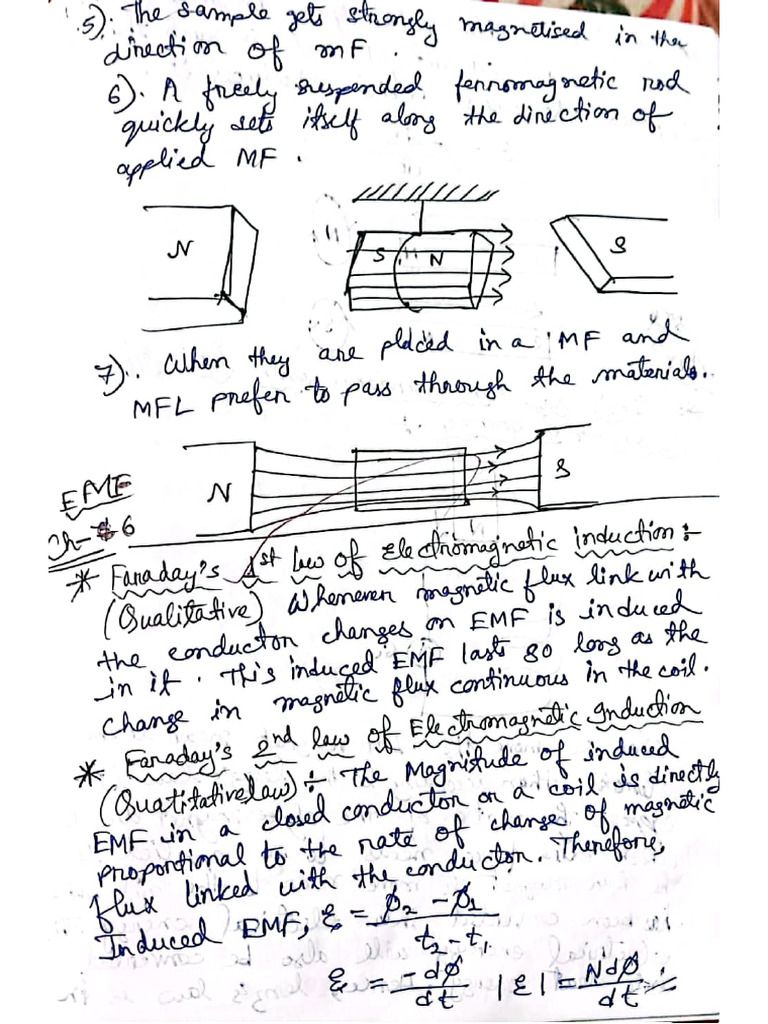 5). The sample gets strongly magnetised in the
direction of mF.
6). A freely suspended ferromagnetic rod
quickly sets itself along the direction of
applied MF.
N S N S
7). When they are placed in a MF and
MFL prefer to pass through the materials.
N S
EMF
Ch- 6
* Faraday's 1st law of Electromagnetic induction:-
(Qualitative) Whenever magnetic flux link with
the conductor changes an EMF is induced
in it. This induced EMF lasts so long as the
change in magnetic flux continuous in the coil.
* Faraday's 2nd law of Electromagnetic Induction
(Quatitativelaw) ÷ The Magnitude of induced
EMF in a closed conductor or a coil is directly
proportional to the rate of change of magnetic
flux linked with the conductor. Therefore,
Induced EMF, ε = φ₂ - φ₁ / t₂ - t₁
ε = -dφ / dt |ε| = Ndφ / dt